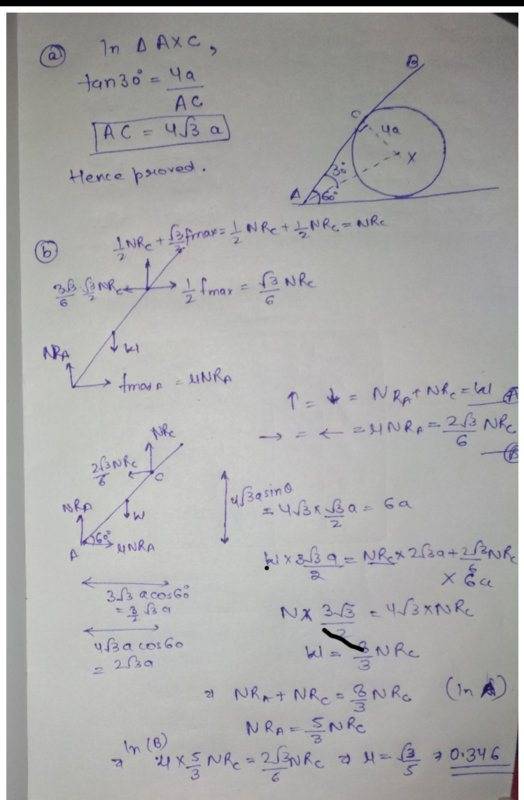 (a) In Δ AXC,
tan30° = 4a/AC
AC = 4√3 a
Hence proved.
B
C
4a
30°
X
A
60°
(b)
1/2 NRc + √3/2 fmax = 1/2 NRc + 1/2 NRc = NRc
3√3/6 √3/2 NRc
1/2 fmax = √3/6 NRc
NRA
W
fmax A = μNRA
↑ = ↓ = NRA + NRc = W (A)
→ = ← = μNRA = 2√3/6 NRc (B)
NRc
2√3/6 NRc
C
4√3 a sinθ
= 4√3 × √3/2 a = 6a
NRA
W
60°
A
μNRA
W × 3√3 a/2 = NRc × 2√3a + 2√3/6 NRc
× 6a
3√3 a cos60°
= 3/2 √3a
W × 3√3/2 = 4√3 × NRc
4√3 a cos60
= 2√3a
W = 8/3 NRc
⇒ NRA + NRc = 8/3 NRc (In A)
NRA = 5/3 NRc
In (B)
⇒ μ × 5/3 NRc = 2√3/6 NRc ⇒ μ = √3/5 ⇒ 0.346